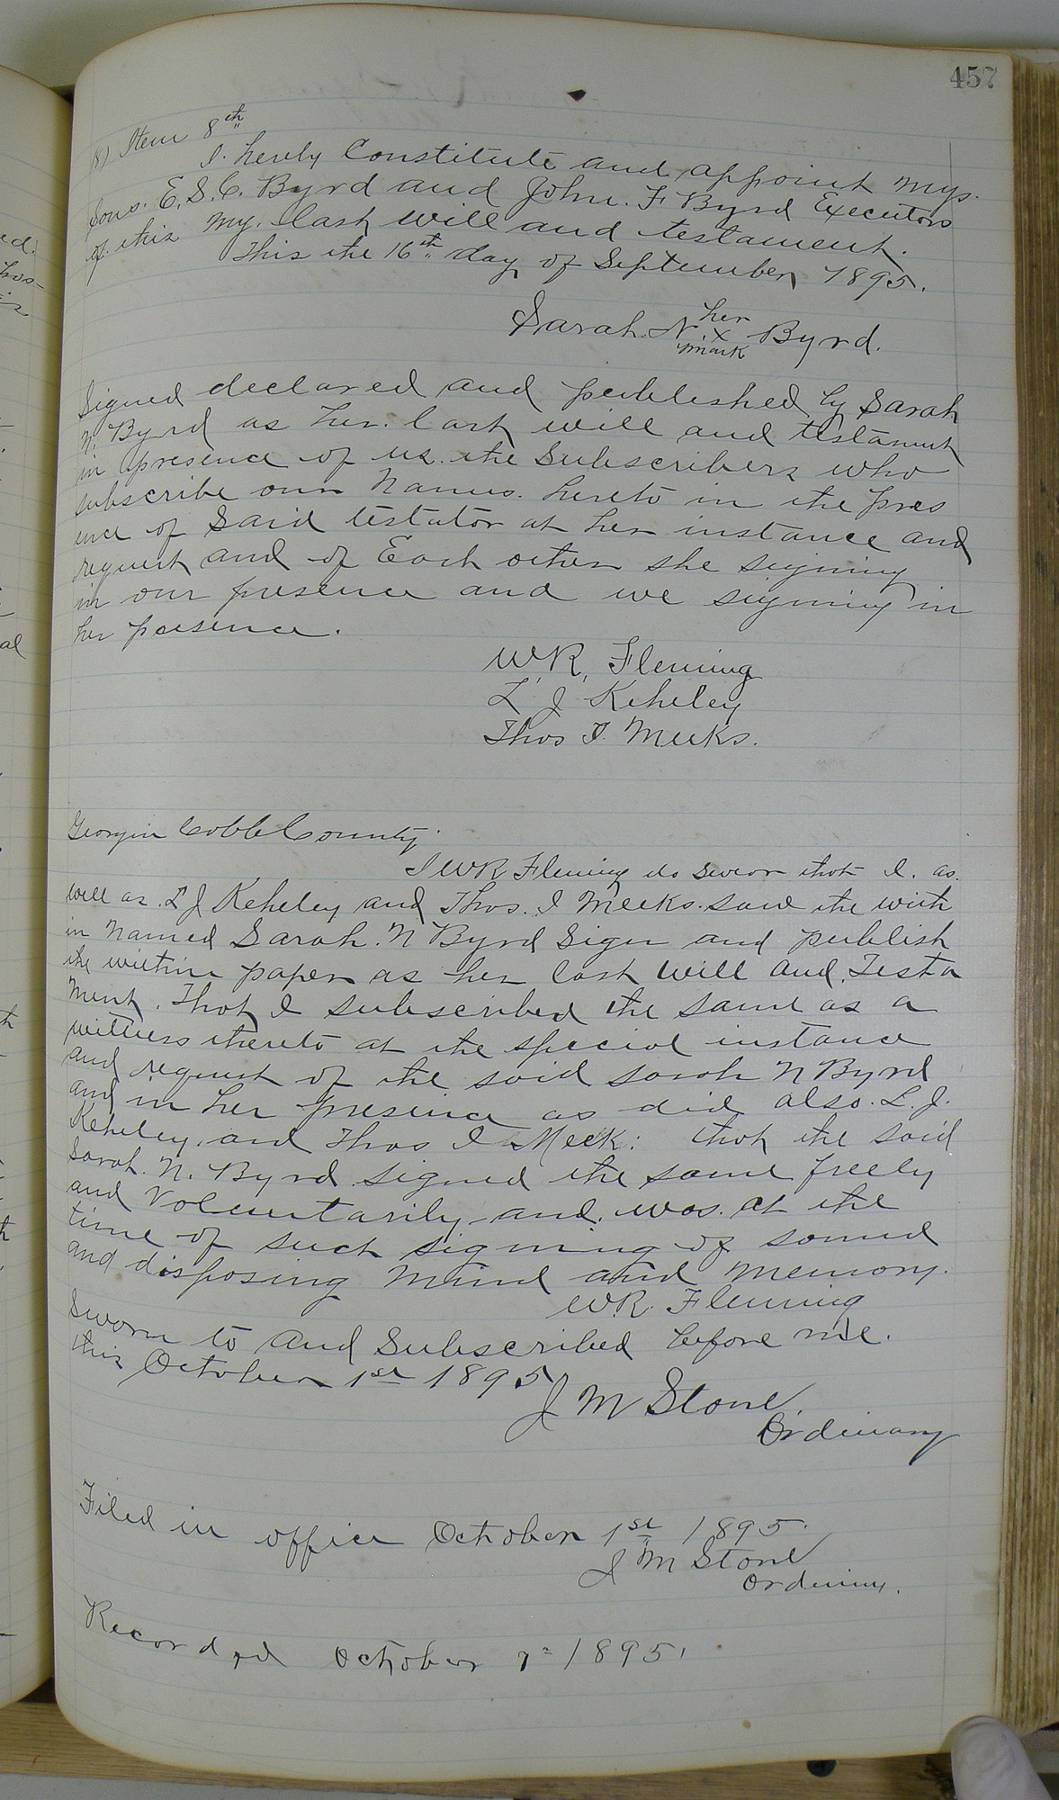 457
(8) Item 8th
I. hereby Constitute and appoint mys.
Sons. E. S. C. Byrd and John. F Byrd Executors
of this my. last will and testament.
This the 16th day of September 1895.
her
Sarah. N. x Byrd.
mark
Signed declared and published by Sarah
N. Byrd as her. last will and testament
in presence of us. the Subscribers who
subscribe our Names. hereto in the pres
ence of Said testator at her instance and
request and of Each other she signing
in our presence and we signing in
her presence.
W. R, Fleming
L, J Keheley
Thos I. Meeks.
Georgia Cobb County.
I W R Fleming do swear that I. as.
well as. L J Keheley and Thos. I Meeks. saw the with
in Named Sarah. N Byrd Sign and publish
the within paper as her last will and. Testa
ment. That I subscribed the same as a
witness thereto at the special instance
and request of the said Sarah N Byrd
and in her presence as did also. L. J.
Keheley. and Thos I Meek: that the said
Sarah. N. Byrd signed the same freely
and Voluntarily and. was. at the
time of such signing of sound
and disposing mind and memory.
W. R. Fleming
Sworn to and Subscribed before me.
this October 1st 1895
J M Stone.
Ordinary
Filed in office October 1st 1895.
J M Stone
Ordinary.
Recorded October 1895.
ed.
hos-
al